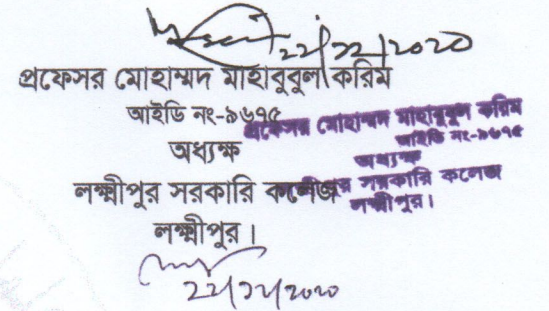 ২২/১২/২০২০
প্রফেসর মোহাম্মদ মাহাবুবুল করিম
আইডি নং-৯৬৭৫
অধ্যক্ষ
লক্ষ্মীপুর সরকারি কলেজ
লক্ষ্মীপুর।
প্রফেসর মোহাম্মদ মাহাবুবুল করিম
আইডি নং-৯৬৭৫
অধ্যক্ষ
সরকারি কলেজ
লক্ষ্মীপুর।
২২/১২/২০২০